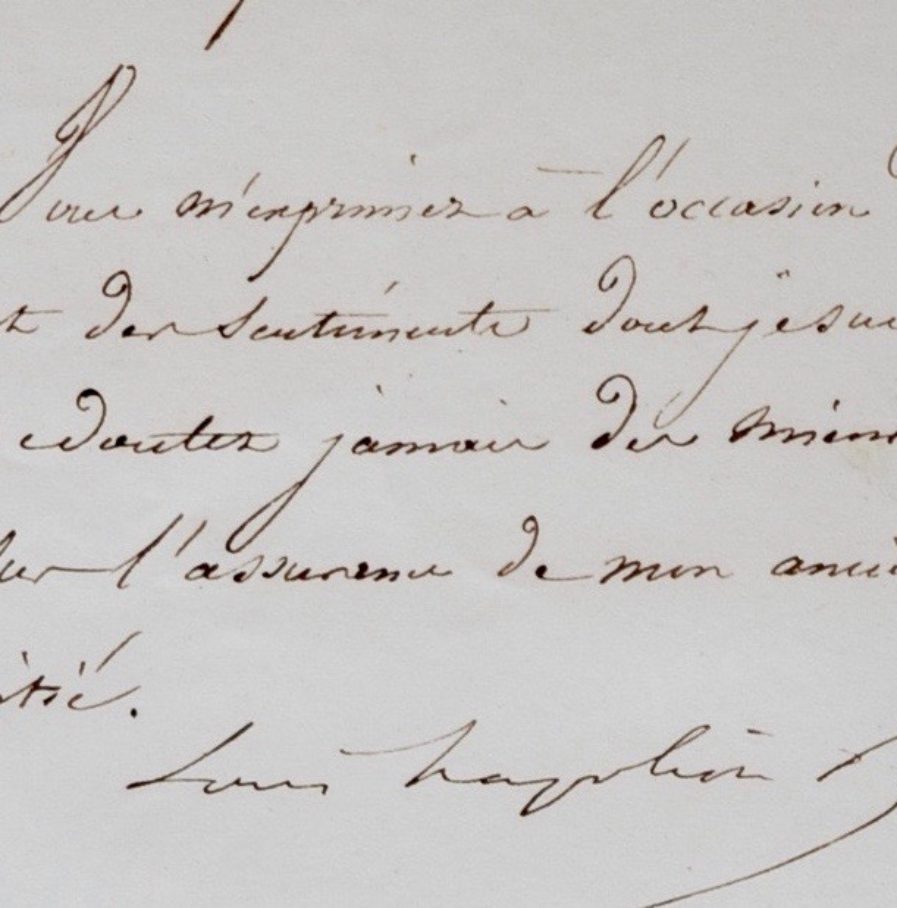 Vous m'exprimez à l'occasion
des sentiments dont je sui
doutez jamais des miens
sur l'assurance de mon anci
itié.
Louis Napoléon